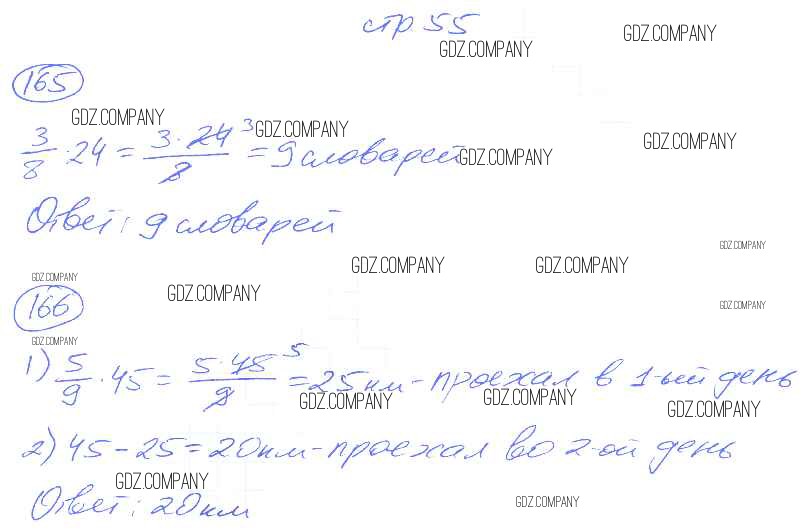 стр 55
GDZ.COMPANY GDZ.COMPANY
165
GDZ.COMPANY GDZ.COMPANY GDZ.COMPANY GDZ.COMPANY
3/8 · 24 = 3·24 3/8 = 9 словарей
Ответ: 9 словарей
GDZ.COMPANY
GDZ.COMPANY GDZ.COMPANY GDZ.COMPANY GDZ.COMPANY
166 GDZ.COMPANY
GDZ.COMPANY
1) 5/9 · 45 = 5·45 5/9 = 25 км - проехал в 1-ый день
GDZ.COMPANY GDZ.COMPANY GDZ.COMPANY
2) 45 - 25 = 20 км - проехал во 2-ой день
GDZ.COMPANY GDZ.COMPANY
Ответ: 20 км